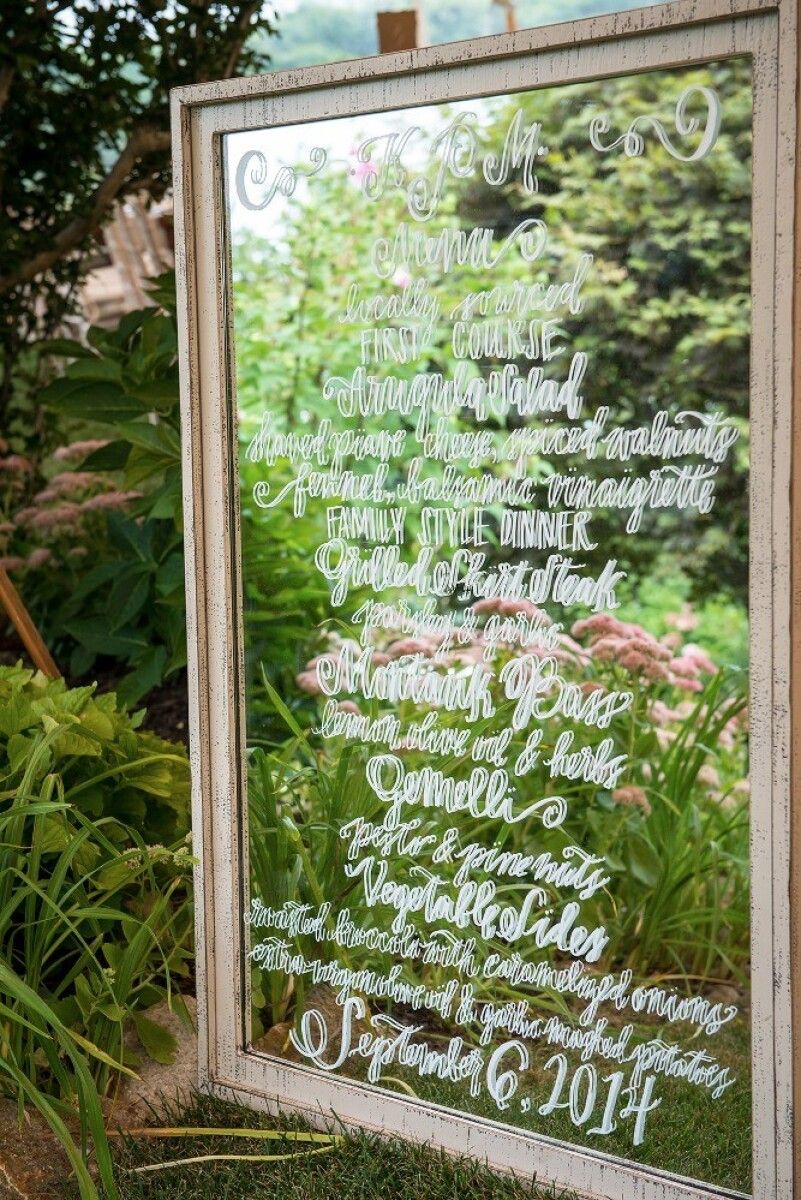 KPM
Menu
locally sourced
FIRST COURSE
Arugula Salad
shaved piave cheese, spiced walnuts
fennel, balsamic vinaigrette
FAMILY STYLE DINNER
Grilled Skirt Steak
parsley & garlic
Montauk Bass
lemon olive oil & herbs
Gemelli
pesto & pine nuts
Vegetable Sides
roasted broccoli with caramelized onions
extra virgin olive oil & garlic mashed potatoes
September 6, 2014